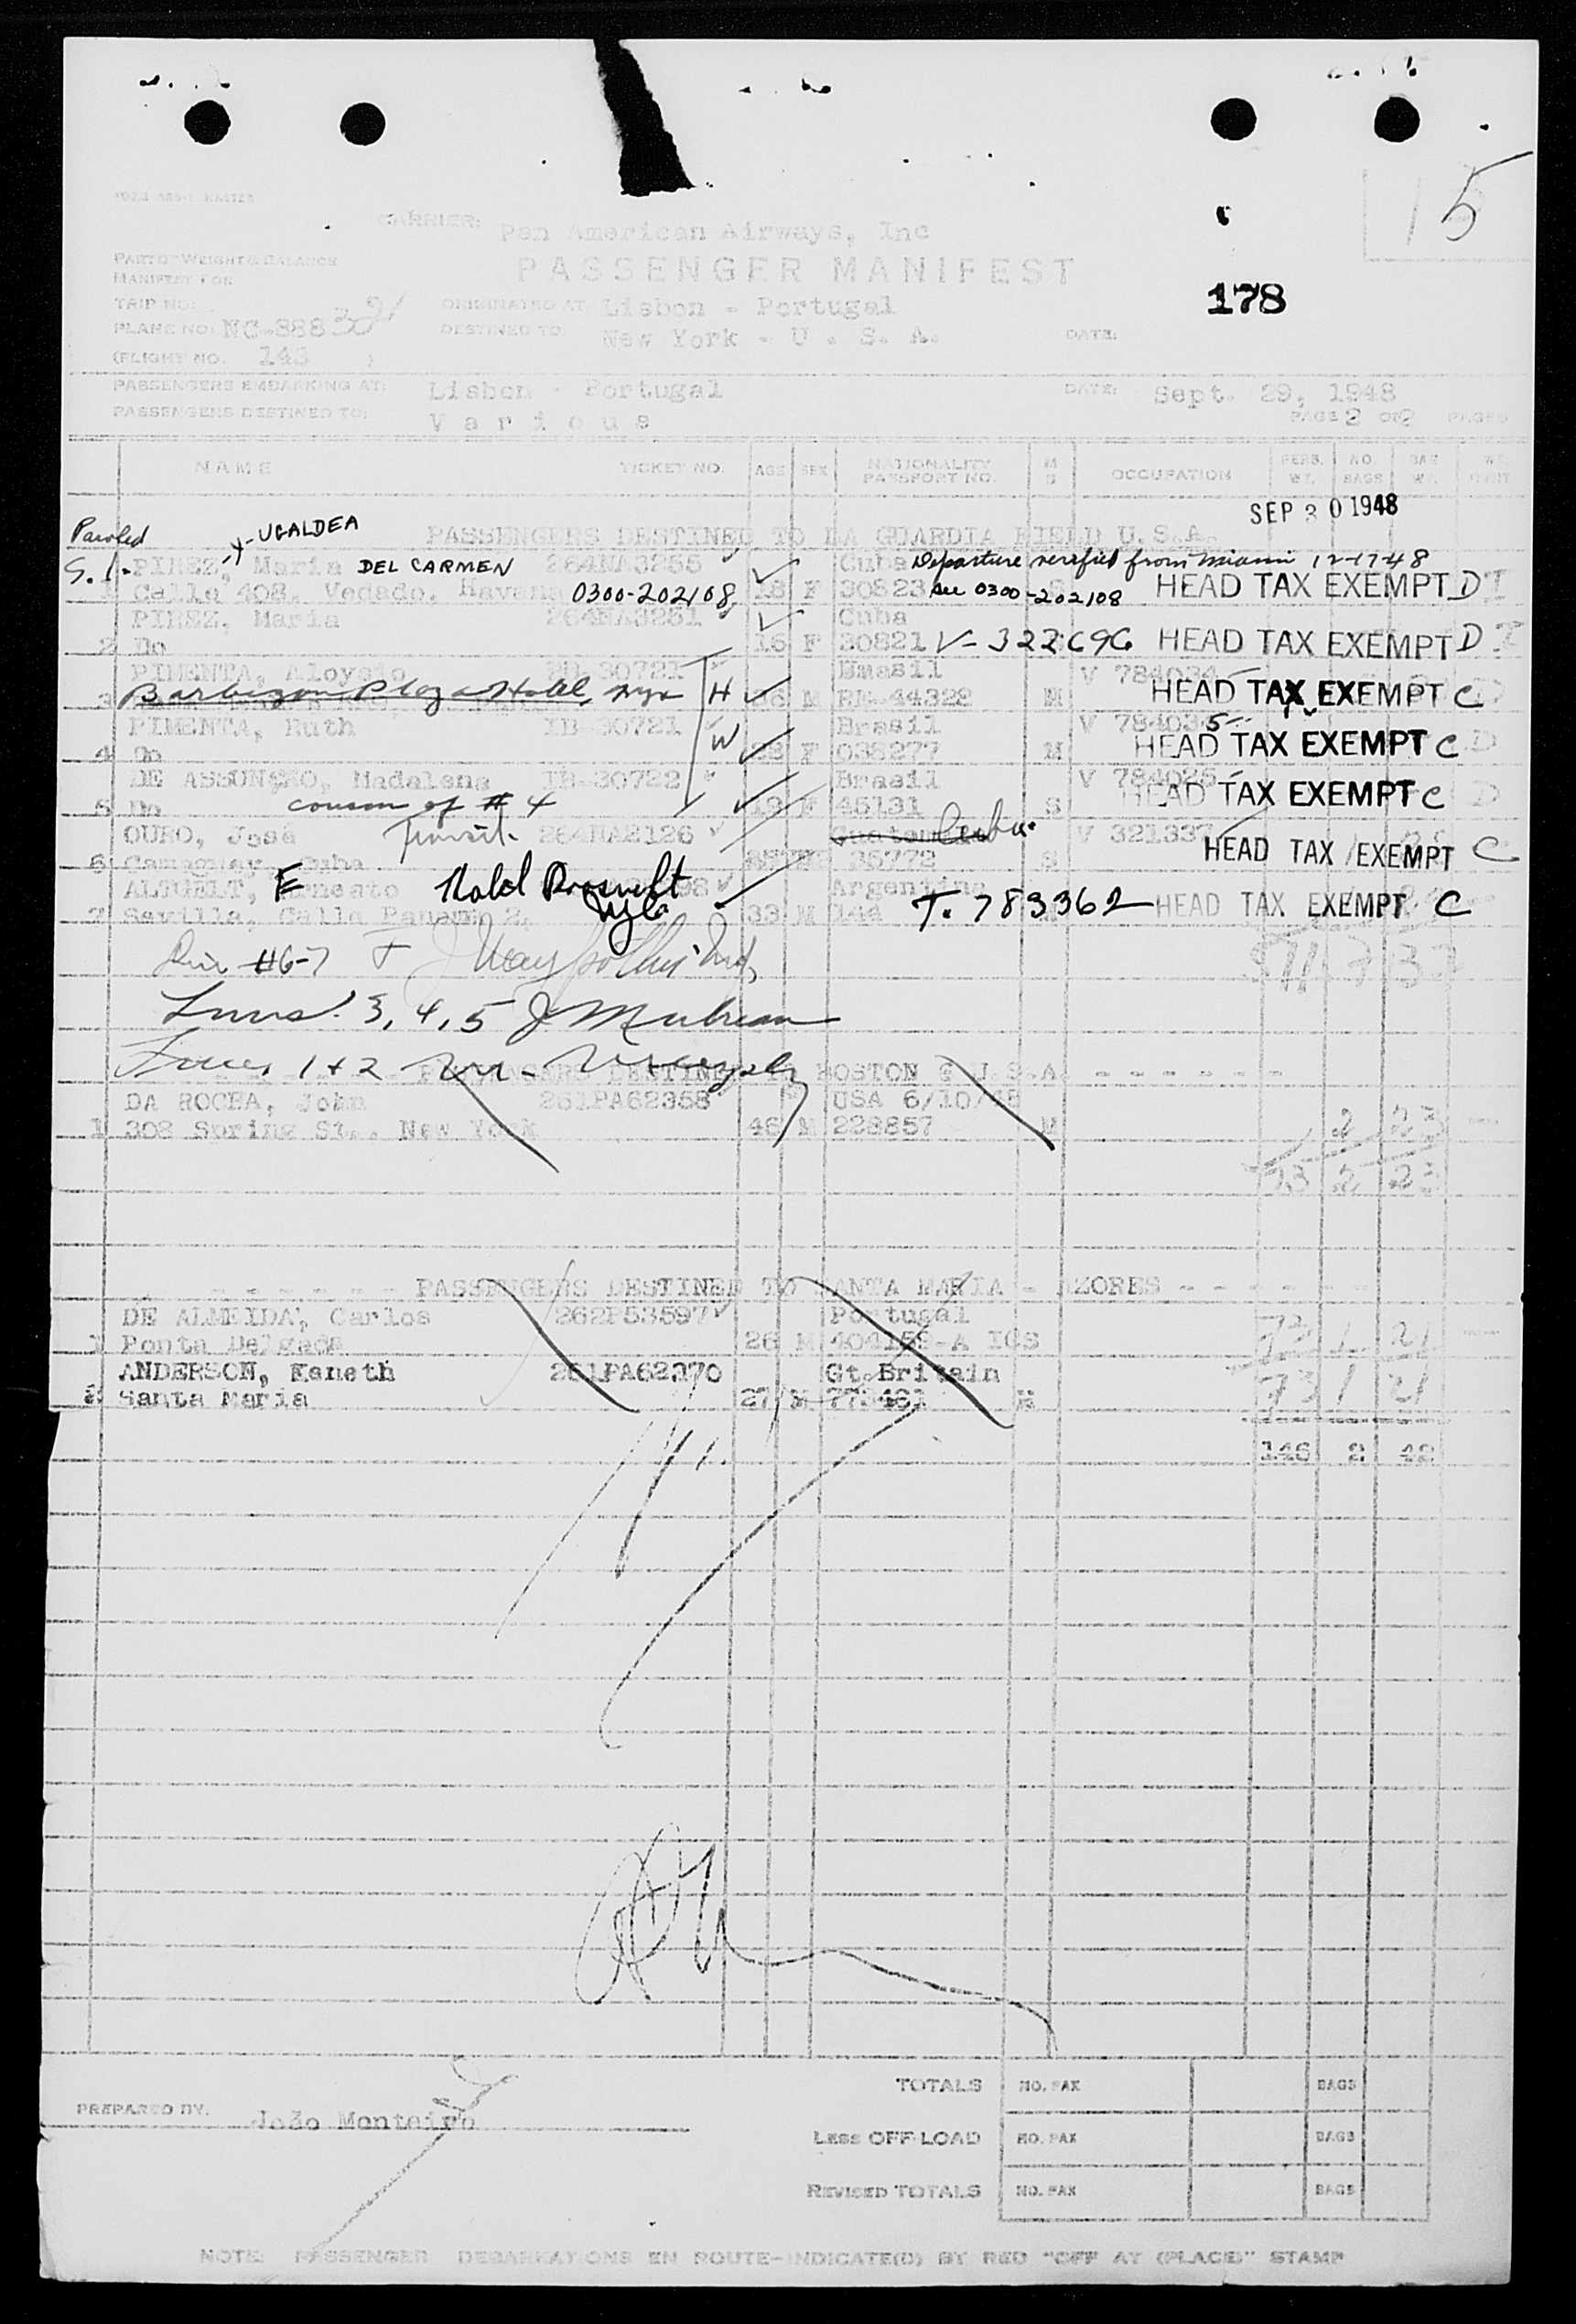 15
CARRIER: Pan American Airways, Inc
PART OF WEIGHT & BALANCE
MANIFEST FOR
PASSENGER MANIFEST
178
TRIP NO:
ORIGINATED AT Lisbon - Portugal
PLANE NO: NC-888
DESTINED TO New York - U. S. A.
DATE:
(FLIGHT NO. 143 )
PASSENGERS EMBARKING AT: Lisbon - Portugal DATE: Sept. 29, 1948
PASSENGERS DESTINED TO: Various PAGE 2 OF 2 PAGES
NAME TICKET NO. AGE SEX NATIONALITY PASSPORT NO. M S OCCUPATION PERS. WT. NO. BAGS BAG WT.
SEP 30 1948
Paroled -Y-UGALDEA PASSENGERS DESTINED TO LA GUARDIA FIELD U.S.A.
S.I. PIREZ, Maria DEL CARMEN 264NA3255 Cuba Departure verified from Miami 12-17-48
1 Calle 408, Vedado, Havana 0300-202108 18 F 30823 See 0300-202108 HEAD TAX EXEMPT D
PIREZ, Maria 264NA3251 Cuba
2 Do 16 F 30821 V-322696 HEAD TAX EXEMPT D
PIMENTA, Aloysio IB-30721 Brasil V 784034
3 Barbizon Plaza Hotel, nyc H M RE-44322 M HEAD TAX EXEMPT C
PIMENTA, Ruth IB-30721 Brasil V 784035
4 Do W F 038277 M HEAD TAX EXEMPT C
DE ASSUNÇÃO, Madalena IB-30722 Brasil V 784025
5 Do cousin of #4 F 45131 S HEAD TAX EXEMPT C
OURO, José Transit. 264NA2126 Cuba. V 321337
6 Camaguay, Cuba 35772 S HEAD TAX EXEMPT C
E Ernesto Hotel Roosevelt Argentina
7 Sevilla, Calle 33 M 144 T. 783362 HEAD TAX EXEMPT C
#6-7
3, 4, 5
Lines 1+2
PASSENGERS DESTINED TO BOSTON U.S.A - - - - - -
DA ROCHA, John 261PA62358 USA 6/10/48
1 308 Spring St., New York 46 M 228857 M 2 23
73 2 23
- - - - - - PASSENGERS DESTINED TO SANTA MARIA - AZORES - - - - -
DE ALMEIDA, Carlos 262P53597 Portugal
1 Ponta Delgada 26 M 404159-A IGS 73 1 21
ANDERSON, Keneth 261PA62370 Gt.Britain
2 Santa Maria 27 M 773461 M 73 1 21
146 2 42
TOTALS NO. PAX BAGS
PREPARED BY. João Monteiro
LESS OFF LOAD NO. PAX BAGS
REVISED TOTALS NO. PAX BAGS
NOTE: PASSENGER DEBARKATIONS EN ROUTE-INDICATE(D) BY RED "OFF AT (PLACE)" STAMP